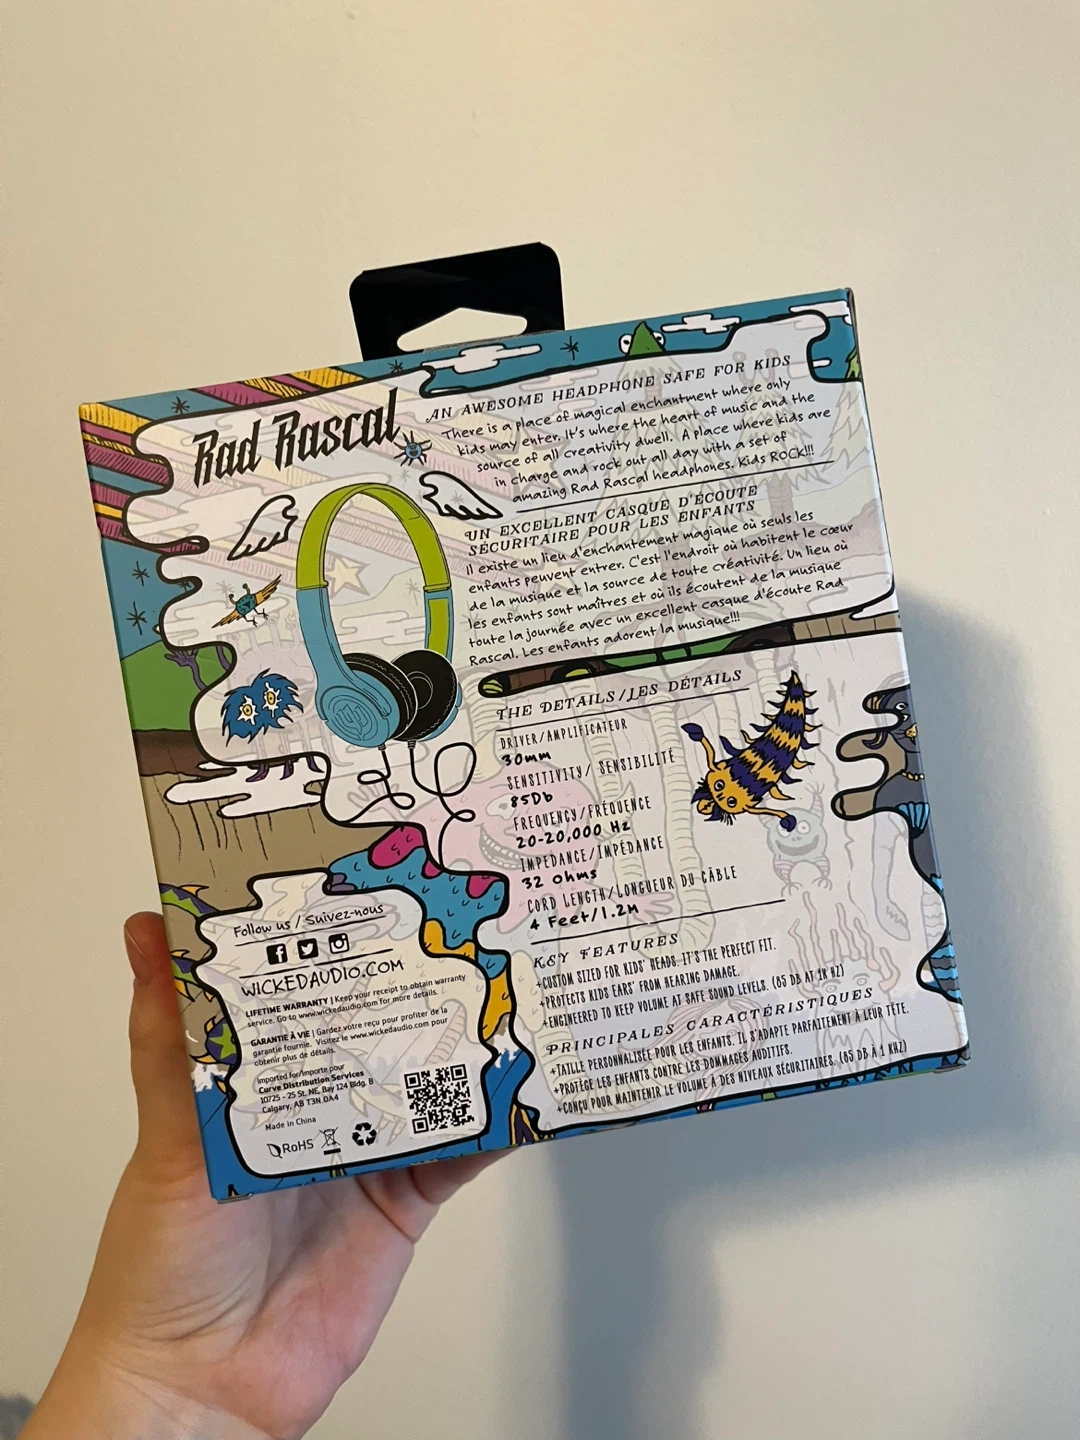 Rad Rascal
AN AWESOME HEADPHONE SAFE FOR KIDS
There is a place of magical enchantment where only
kids may enter. It's where the heart of music and the
source of all creativity dwell. A place where kids are
in charge and rock out all day with a set of
amazing Rad Rascal headphones. Kids ROCK!!!
UN EXCELLENT CASQUE D'ÉCOUTE
SÉCURITAIRE POUR LES ENFANTS
Il existe un lieu d'enchantement magique où seuls les
enfants peuvent entrer. C'est l'endroit où habitent le cœur
de la musique et la source de toute créativité. Un lieu où
les enfants sont maîtres et où ils écoutent de la musique
toute la journée avec un excellent casque d'écoute Rad
Rascal. Les enfants adorent la musique!!!
THE DETAILS/LES DÉTAILS
DRIVER/AMPLIFICATEUR
30mm
SENSITIVITY/ SENSIBILITÉ
85Db
FREQUENCY/FRÉQUENCE
20-20,000 Hz
IMPEDANCE/IMPÉDANCE
32 Ohms
CORD LENGTH/LONGUEUR DU CÂBLE
4 Feet/1.2M
KEY FEATURES
+CUSTOM SIZED FOR KIDS' HEADS. IT'S THE PERFECT FIT.
+PROTECTS KIDS EARS' FROM HEARING DAMAGE.
+ENGINEERED TO KEEP VOLUME AT SAFE SOUND LEVELS. (85 DB AT 1K HZ)
PRINCIPALES CARACTÉRISTIQUES
+TAILLE PERSONNALISÉE POUR LES ENFANTS. IL S'ADAPTE PARFAITEMENT À LEUR TÊTE.
+PROTÉGE LES ENFANTS CONTRE LES DOMMAGES AUDITIFS.
+CONÇU POUR MAINTENIR LE VOLUME À DES NIVEAUX SÉCURITAIRES. (85 DB À 1 KHZ)
Follow us / Suivez-nous
WICKEDAUDIO.COM
LIFETIME WARRANTY | Keep your receipt to obtain warranty
service. Go to www.wickedaudio.com for more details.
GARANTIE À VIE | Gardez votre reçu pour profiter de la
garantie fournie. Visitez le www.wickedaudio.com pour
obtenir plus de détails.
Imported for/Importe pour
Curve Distribution Services
10725 - 25 St. NE, Bay 124 Bldg. B
Calgary, AB T3N 0A4
Made in China
RoHS